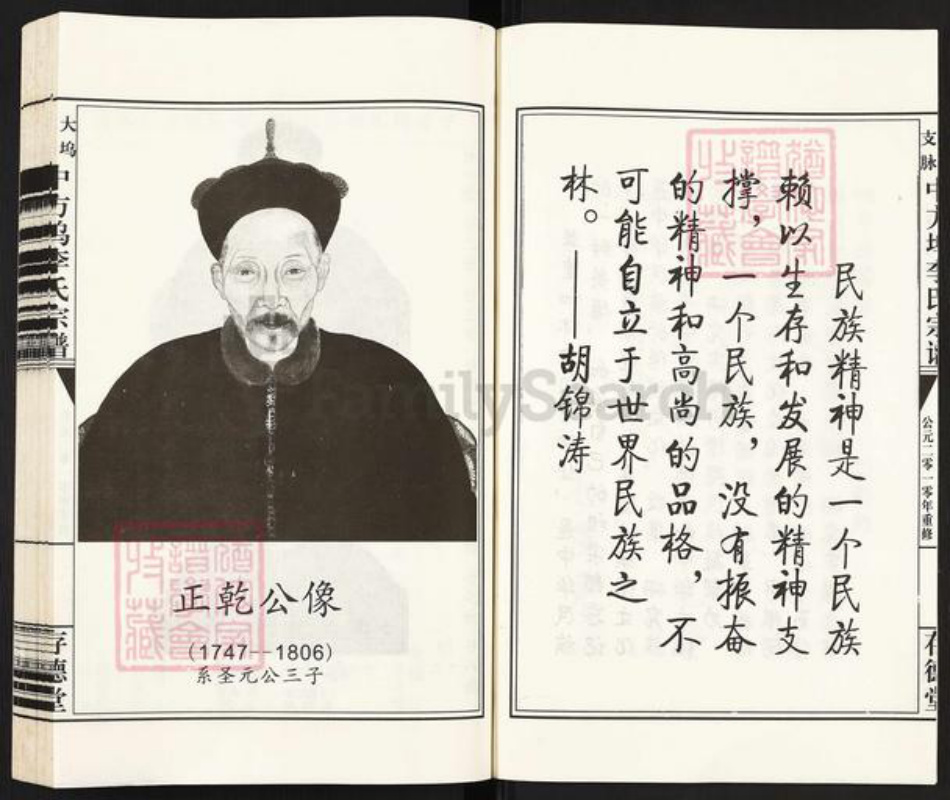 民族精神是一个民族
赖以生存和发展的精神支
撑，一个民族，没有振奋
的精神和高尚的品格，不
可能自立于世界民族之
林。——胡锦涛
支脉
中方坞李氏宗谱
公元二零一零年重修
存德堂
正乾公像
(1747—1806)
系圣元公三子
大坞
中方坞李氏宗谱
存德堂
FamilySearch